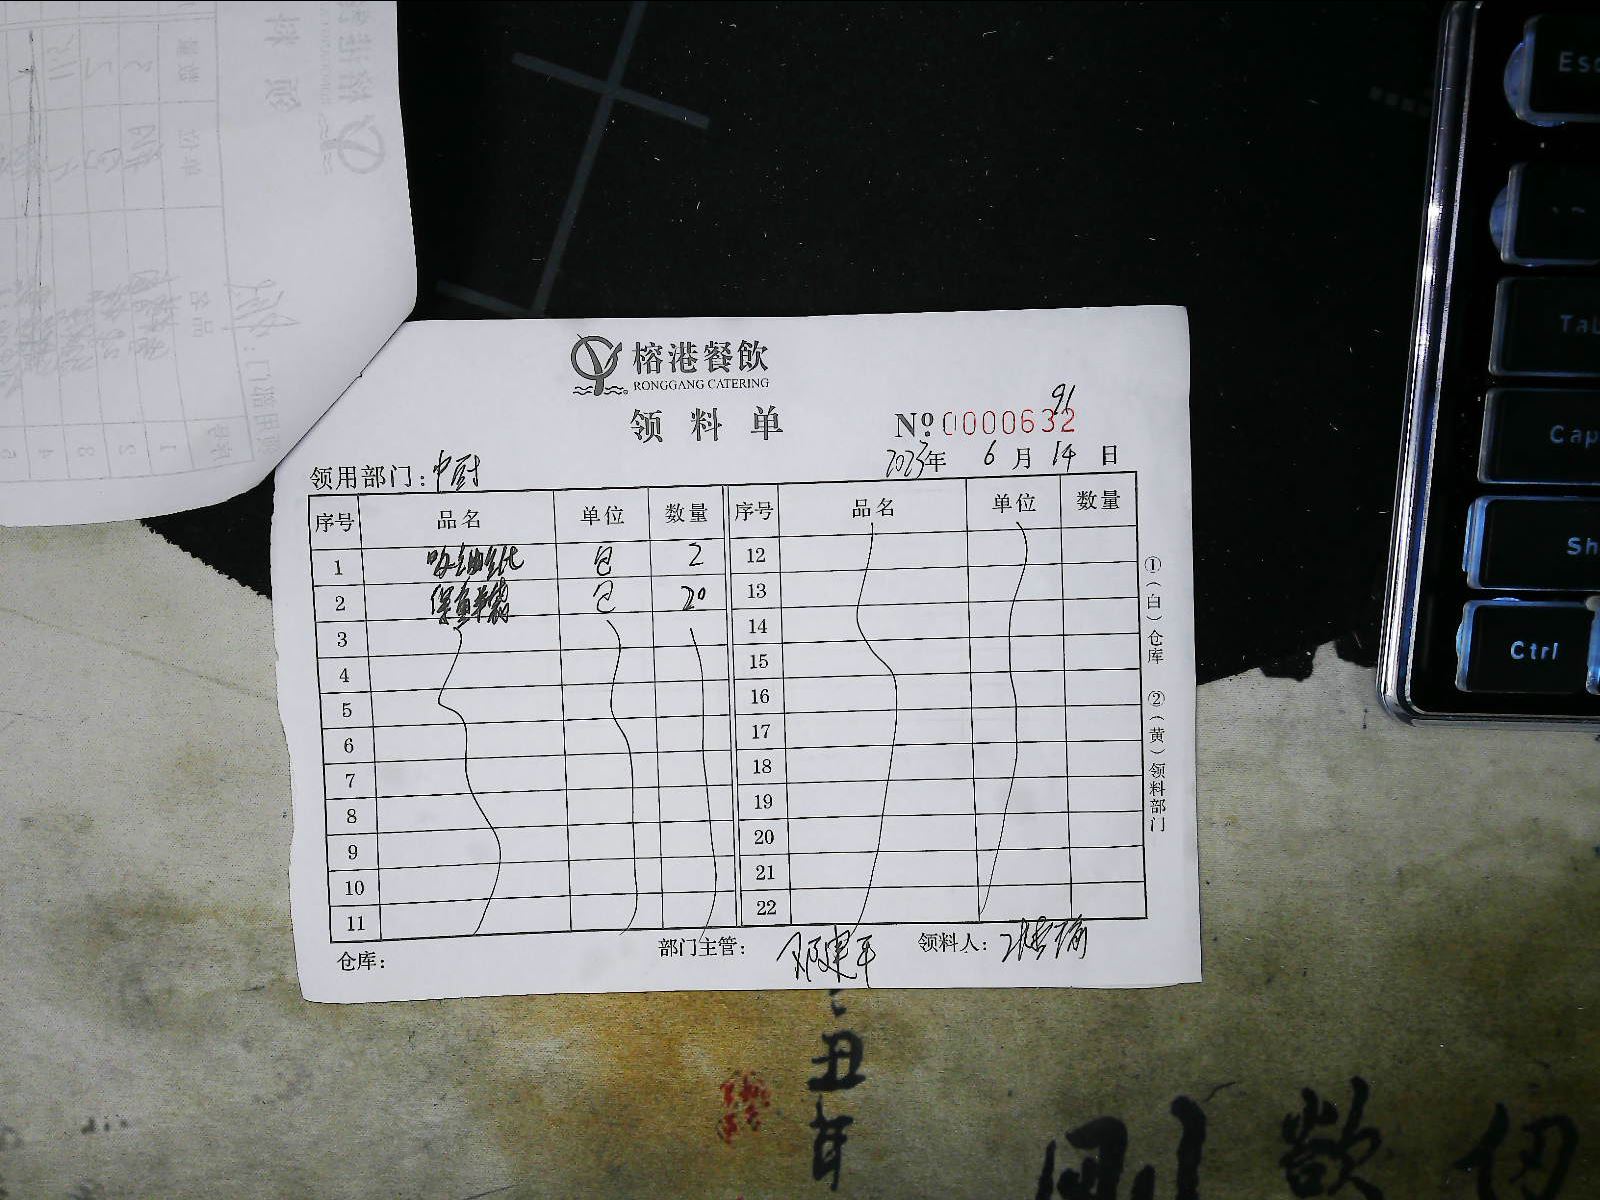 榕港餐飲
RONGGANG CATERING
领料单
91
№ 0000632
领用部门：中厨 2023年 6月 14日
序号 品名 单位 数量 序号 品名 单位 数量
1 吸油纸 包 2 12
2 保鲜袋 包 20 13
3 14
4 15
5 16
6 17
7 18
8 19
9 20
10 21
11 22
仓库： 部门主管：邓建平 领料人：
①（白）仓库 ②（黄）领料部门
Esc
Tab
Cap
Sh
Ctrl
丑年